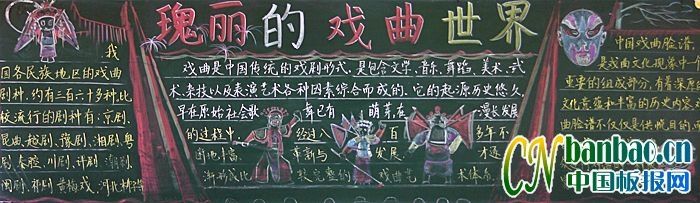 瑰丽的戏曲世界
我
国各民族地区的戏曲
剧种,约有三百六十多种,比
较流行的剧种有:京剧、
昆曲、越剧、豫剧、湘剧、粤
剧、秦腔、川剧、评剧、潮剧、
闽剧、祁剧、黄梅戏、河北梆子
戏曲是中国传统的戏剧形式,是包含文学、音乐、舞蹈、美术、武
术、杂技以及表演艺术各种因素综合而成的。它的起源历史悠久,
早在原始社会歌舞已有萌芽,在漫长发展
的过程中,经过八百多年不
断地丰富、革新与发展,才逐
渐形成比较完整的戏曲艺术体系。
中国戏曲脸谱
是戏曲文化现象中一个
重要的组成部分,有着深厚
文化意蕴和丰富的历史内容
曲脸谱不仅仅是供观
CN banbao.cn
中国板报网